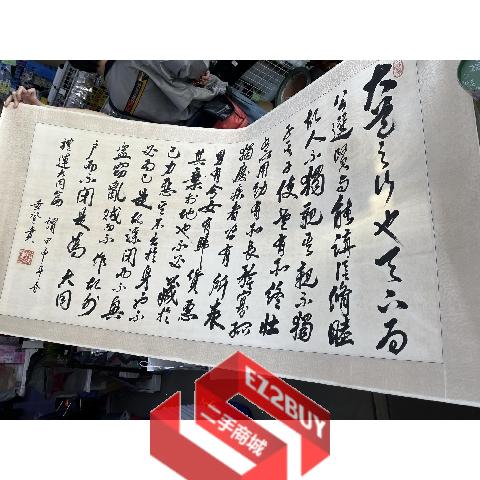 大道之行也天下為
公選賢與能講信修睦
故人不獨親其親不獨
子其子使老有所終壯
有所用幼有所長矜寡孤
獨廢疾者皆有所養
男有分女有歸貨惡
其棄於地也不必藏於
己力惡其不出於身也不
必為己是故謀閉而不興
盜竊亂賊而不作故外
戶而不閉是為大同
禮運大同篇
EZ2BUY
二手商城